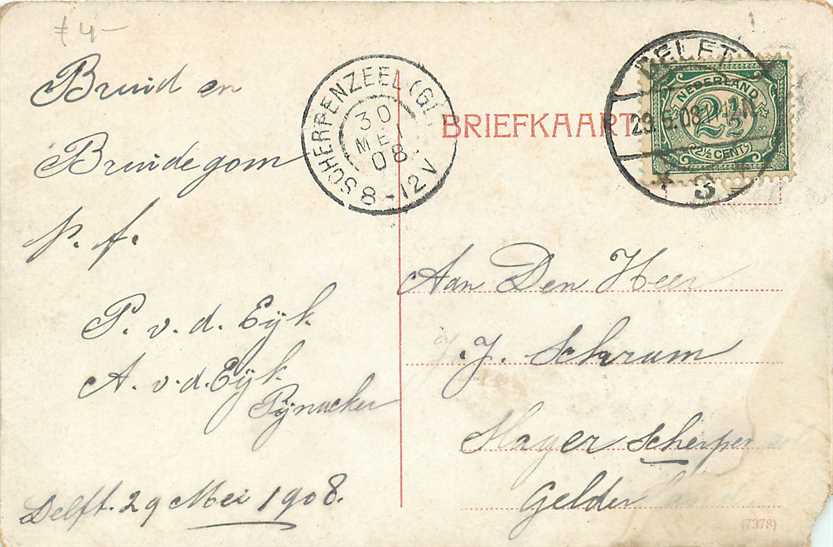 £4-
Bruid en
Bruidegom
p. f.
P. v. d. Eijk
A. v. d. Eijk
Pijnacker
Delft. 29 Mei 1908.
SCHERPENZEEL (GL
30
MEI
08
8-12V
BRIEFKAART
DELFT
29.5.08
3
NEDERLAND
2½
(2½ CENT)
Aan Den Heer
J. Schrum
Slager Scherpen
Gelder
(7378)